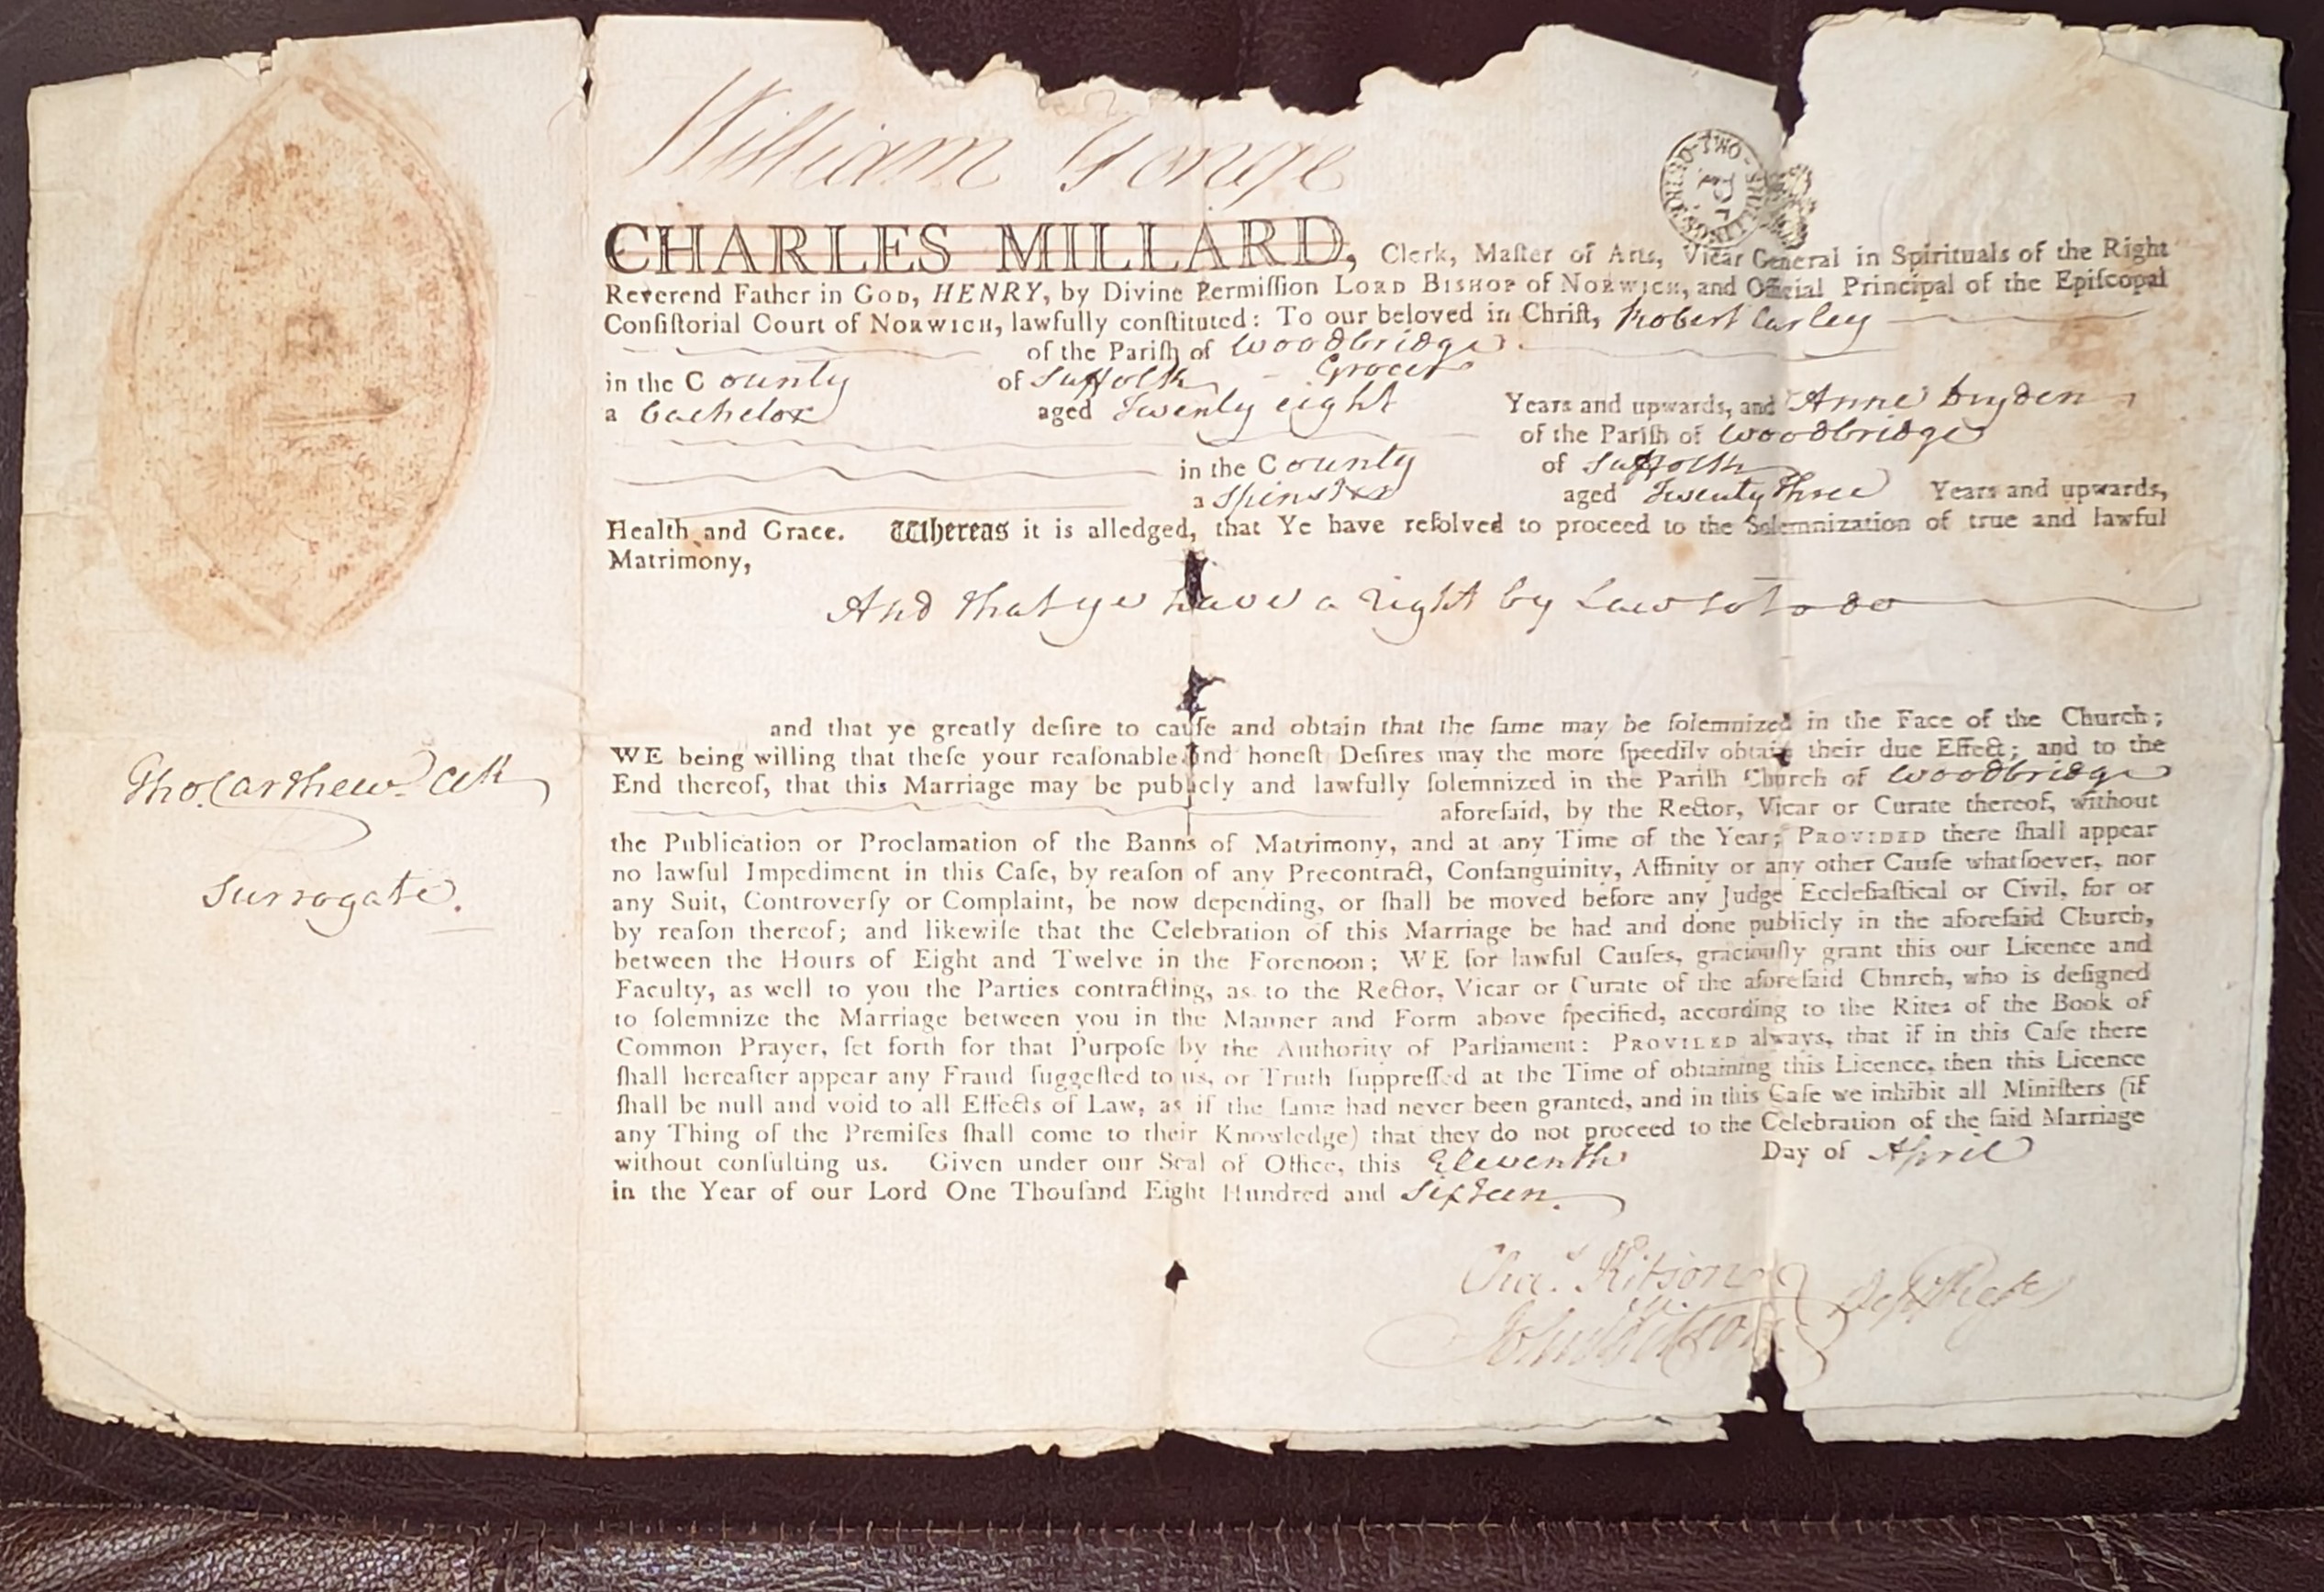 William Yonge
CHARLES MILLARD, Clerk, Maſter of Arts, Vicar General in Spirituals of the Right
Reverend Father in GOD, HENRY, by Divine Permiſſion LORD BISHOP of NORWICH, and Official Principal of the Epiſcopal
Conſiſtorial Court of NORWICH, lawfully conſtituted: To our beloved in Chriſt, Robert Carley
of the Pariſh of Woodbridge
in the County of Suffolk Grocer
a bachelor aged Twenty eight Years and upwards, and Anne Dryden
of the Pariſh of Woodbridge
in the County of Suffolk
a Spinster aged Twenty three Years and upwards,
Health and Grace. Whereas it is alledged, that Ye have reſolved to proceed to the Solemnization of true and lawful
Matrimony,
And that ye have a right by Law so to do
and that ye greatly deſire to cauſe and obtain that the ſame may be ſolemnized in the Face of the Church;
WE being willing that theſe your reaſonable and honeſt Deſires may the more ſpeedily obtain their due Effect; and to the
End thereof, that this Marriage may be publicly and lawfully ſolemnized in the Pariſh Church of Woodbridge
aforeſaid, by the Rector, Vicar or Curate thereof, without
the Publication or Proclamation of the Banns of Matrimony, and at any Time of the Year; PROVIDED there ſhall appear
no lawful Impediment in this Caſe, by reaſon of any Precontract, Conſanguinity, Affinity or any other Cauſe whatſoever, nor
any Suit, Controverſy or Complaint, be now depending, or ſhall be moved before any Judge Eccleſiaſtical or Civil, for or
by reaſon thereof; and likewiſe that the Celebration of this Marriage be had and done publicly in the aforeſaid Church,
between the Hours of Eight and Twelve in the Forenoon; WE for lawful Cauſes, graciouſly grant this our Licence and
Faculty, as well to you the Parties contracting, as to the Rector, Vicar or Curate of the aforeſaid Church, who is deſigned
to ſolemnize the Marriage between you in the Manner and Form above ſpecified, according to the Rites of the Book of
Common Prayer, ſet forth for that Purpoſe by the Authority of Parliament: PROVIDED always, that if in this Caſe there
ſhall hereafter appear any Fraud ſuggeſted to us, or Truth ſuppreſſed at the Time of obtaining this Licence, then this Licence
ſhall be null and void to all Effects of Law, as if the ſame had never been granted, and in this Caſe we inhibit all Miniſters (if
any Thing of the Premiſes ſhall come to their Knowledge) that they do not proceed to the Celebration of the ſaid Marriage
without conſulting us. Given under our Seal of Office, this Eleventh Day of April
in the Year of our Lord One Thouſand Eight Hundred and Sixteen.
Chas. Kitson
John Kitson
Tho. Carthew Clk
Surrogate.
TWO SHILLINGS